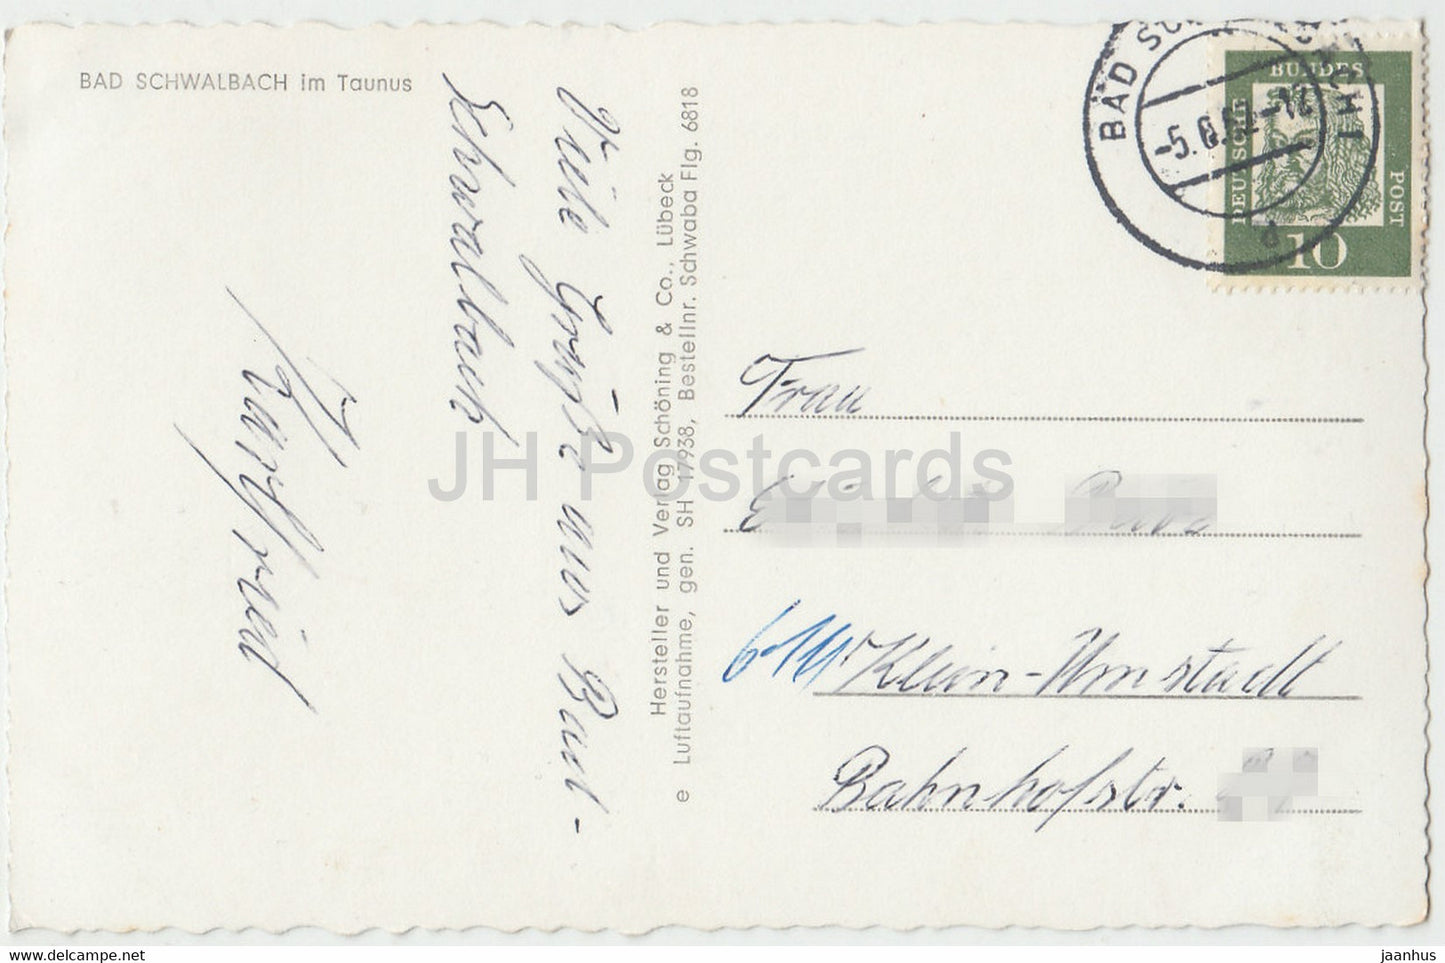 BAD SCHWALBACH im Taunus
Viele Grüße aus Bad-
Schwalbach
Karlfried
Hersteller und Verlag Schöning & Co., Lübeck
e Luftaufnahme, gen. SH 17938, Bestellnr. Schwaba Flg. 6818
BAD
-5.
DEUTSCHE
BUNDES
POST
10
Frau
Klein-Umstadt
Bahnhofstr.
JH Postcards
www.delcampe.net
jaanhus